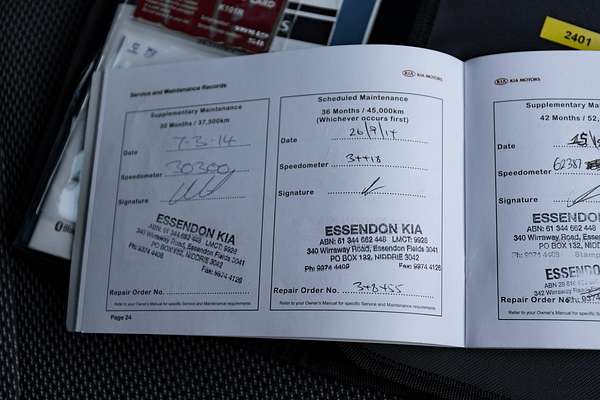 CARD
2401
Service and Maintenance Records
KIA MOTORS
KIA MOTORS
Supplementary Maintenance
30 Months / 37,500km
Date 7-3-14
Speedometer 30300
Signature
ESSENDON KIA
ABN: 61 344 662 448 LMCT: 9928
340 Wirraway Road, Essendon Fields 3041
PO BOX 132, NIDDRIE 3042
Ph: 9374 4409 Fax: 9974 4126
Repair Order No.
Refer to your Owner's Manual for specific Service and Maintenance requirements
Page 24
Scheduled Maintenance
36 Months / 45,000km
(Whichever occurs first)
Date 26/9/14
Speedometer
Signature
ESSENDON KIA
ABN: 61 344 662 448 LMCT: 9928
340 Wirraway Road, Essendon Fields 3041
PO BOX 132, NIDDRIE 3042
Ph: 9374 4409 Fax: 9974 4126
Repair Order No.
Refer to your Owner's Manual for specific Service and Maintenance requirements
Supplementary Ma
42 Months / 52,
Date
Speedometer 62387
Signature
ESSENDON
ABN: 61 344 662 448
340 Wirraway Road, Essen
PO BOX 132, NIDD
Ph: 9374 4409
Stamp
ESSENDON
Repair Order No.
Refer to your Owner's Manual for specific Service